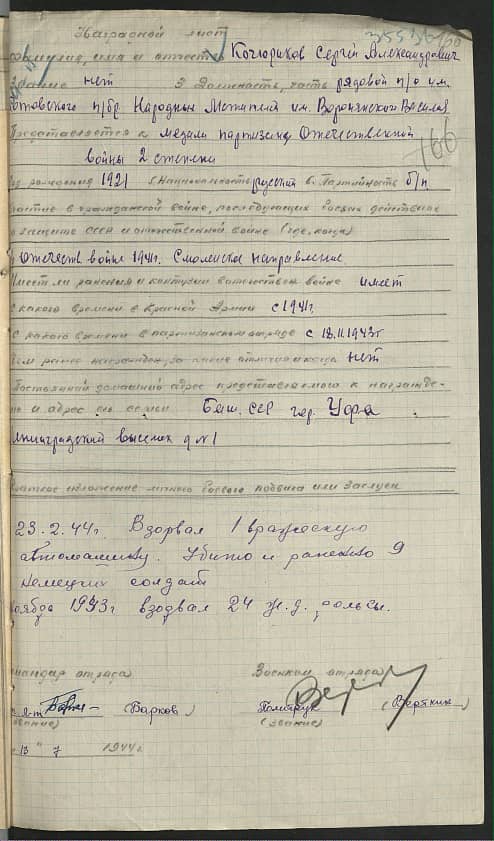 Наградной лист
355
160
Фамилия, имя и отчество Кочюриков Сергей Александрович
Звание нет 3 Должность, часть рядовой п/о им.
Котовского п/бр Народных Мстителей им. Воронянского Василя
Представляется к медали партизану Отечественной
166
войны 2 степени
Год рождения 1921 5 Национальность русский 6. Партийность б/п
Участие в гражданской войне, последующих боевых действиях
по защите СССР и отечественной войне (где, когда)
В Отечеств войне 1941г. Смоленское направление
Имеет ли ранения и контузии в отечествен войне имеет
С какого времени в Красной Армии с 1941г.
С какого времени в партизанском отряде с 18.11.1943г
Чем ранее награжден, за какие отличия и когда нет
Постоянный домашний адрес представляемого к награжде-
нию и адрес его семьи Баш. ССР гор. Уфа
выселок д №1
Краткое изложение личного боевого подвига или заслуги
23.2.44г. Взорвал 1 вражескую
автомашину. Убито и ранено 9
немецких солдат
Ноябрь 1943г взорвал 24 ж.д. рельсы.
Командир отряда Военком отряда
(Барков) Политрук (Верткин)
(звание) (звание)
13 " 7 1944г.